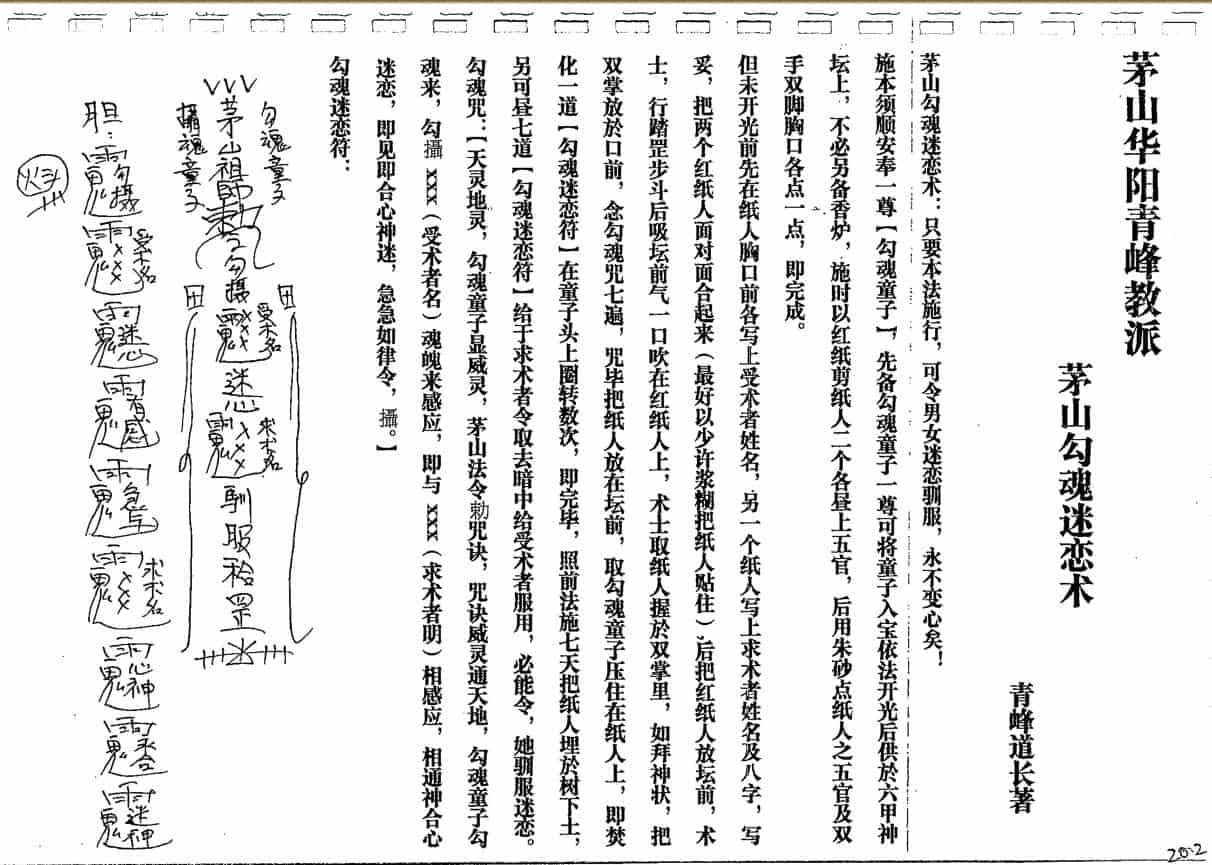 茅山华阳青峰教派
茅山勾魂迷恋术
青峰道长著
茅山勾魂迷恋术：只要本法施行，可令男女迷恋驯服，永不变心矣！
施本须顺安奉一尊【勾魂童子】，先备勾魂童子一尊可将童子入宝依法开光后供於六甲神
坛上，不必另备香炉，施时以红纸剪纸人二个各昼上五官，后用朱砂点纸人之五官及双
手双脚胸口各点一点，即完成。
但未开光前先在纸人胸口前各写上受术者姓名，另一个纸人写上求术者姓名及八字，写
妥，把两个红纸人面对面合起来（最好以少许浆糊把纸人贴住）,后把红纸人放坛前，术
士，行踏罡步斗后吸坛前气一口吹在红纸人上，术士取纸人握於双掌里，如拜神状，把
双掌放於口前，念勾魂咒七遍，咒毕把纸人放在坛前，取勾魂童子压住在纸人上，即焚
化一道【勾魂迷恋符】在童子头上圈转数次，即完毕，照前法施七天把纸人埋於树下土，
另可昼七道【勾魂迷恋符】给于求术者令取去暗中给受术者服用，必能令，她驯服迷恋。
勾魂咒：【天灵地灵，勾魂童子显威灵，茅山法令勅咒诀，咒诀威灵通天地，勾魂童子勾
魂来，勾攝 xxx（受术者名）魂魄来感应，即与 xxx（求术者明）相感应，相通神合心
迷恋，即见即合心神迷，急急如律令，攝。】
勾魂迷恋符：
勾魂童子
茅山祖師
勾攝
受术名
迷心
求术名
馴服
攝魂童子
胆：
勾攝
受术名
迷心
求术名
心神
迷神
20.2